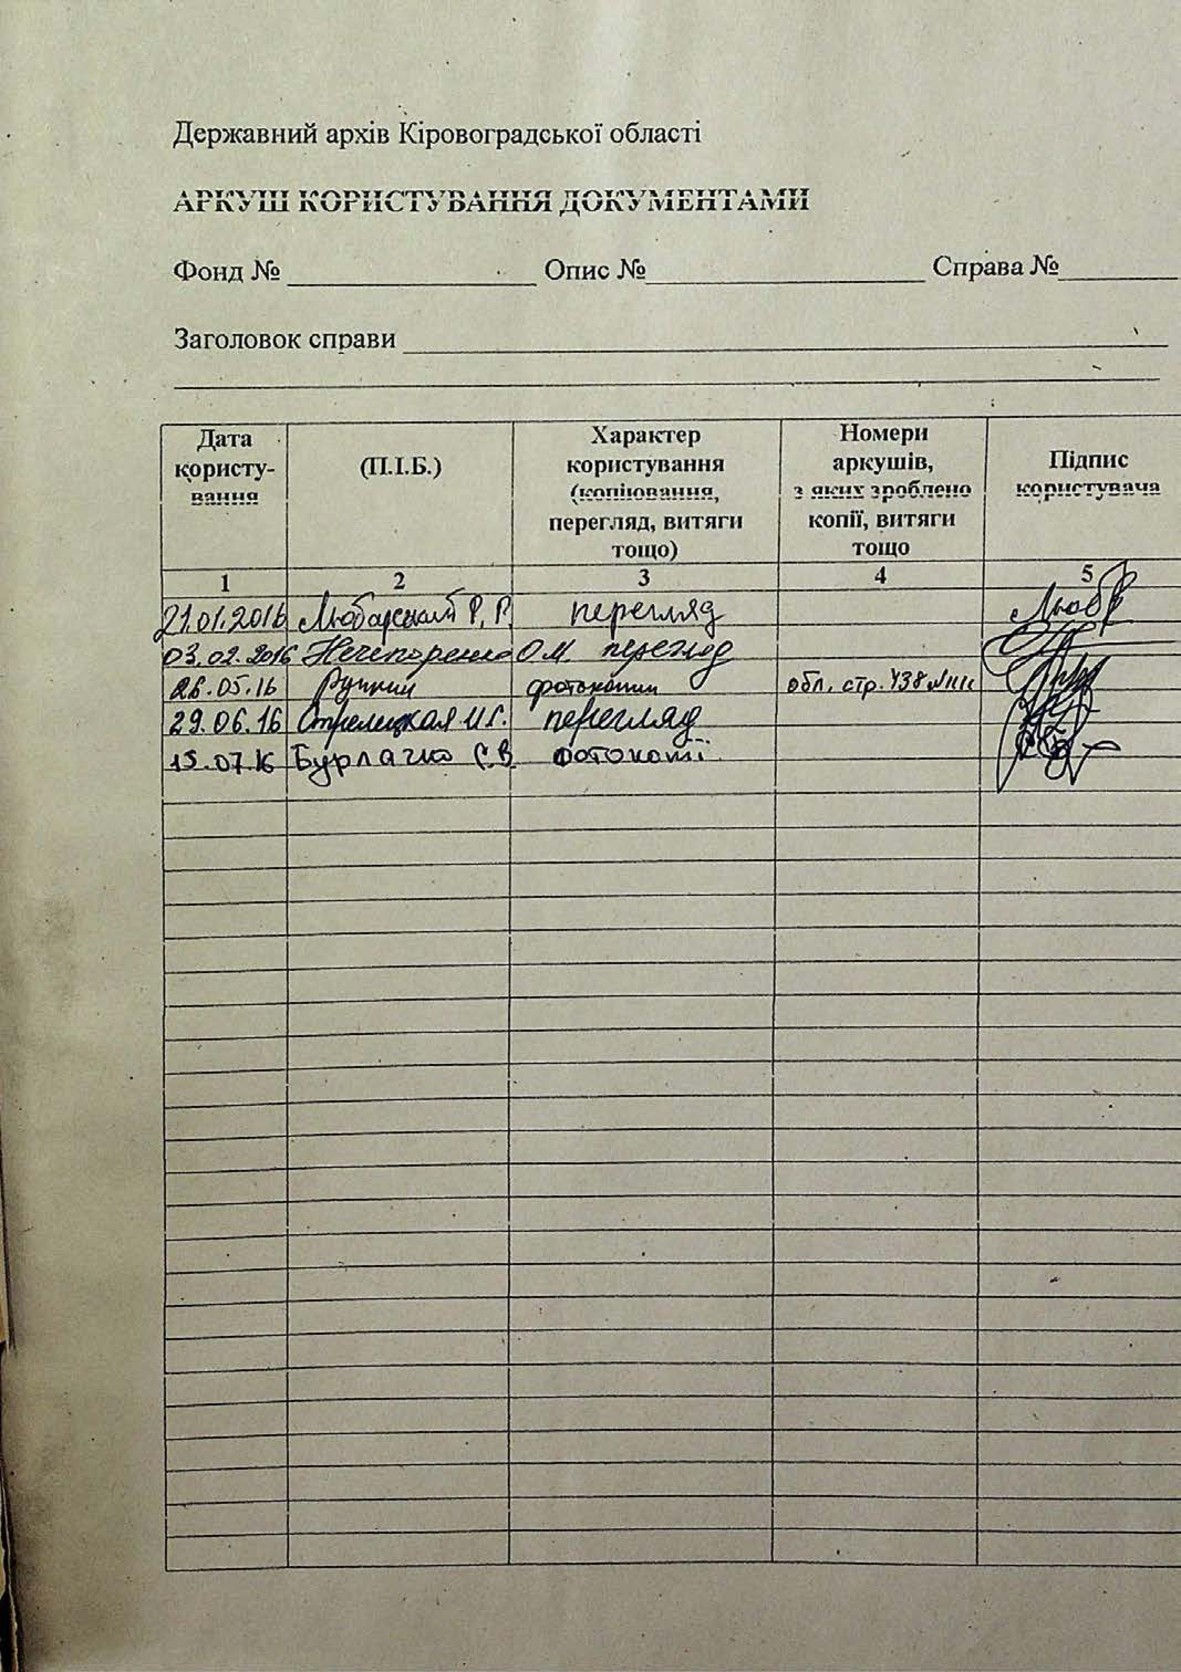 Державний архів Кіровоградської області
АРКУШ КОРИСТУВАННЯ ДОКУМЕНТАМИ
Фонд № Опис № Справа №
Заголовок справи
Дата користу-вання
(П.І.Б.)
Характер користування (копіювання, перегляд, витяги тощо)
Номери аркушів, з яких зроблено копії, витяги тощо
Підпис користувача
1 2 3 4 5
21.01.2016 Любарский Р. Р. перегляд
03.02.2016 Нечепоренко О.М. перегляд
26.05.16 фотокопии обл, стр. 438
29.06.16 Стрелецкая И.Г. перегляд
15.07.16 Бурлачко С.В. фотокопії